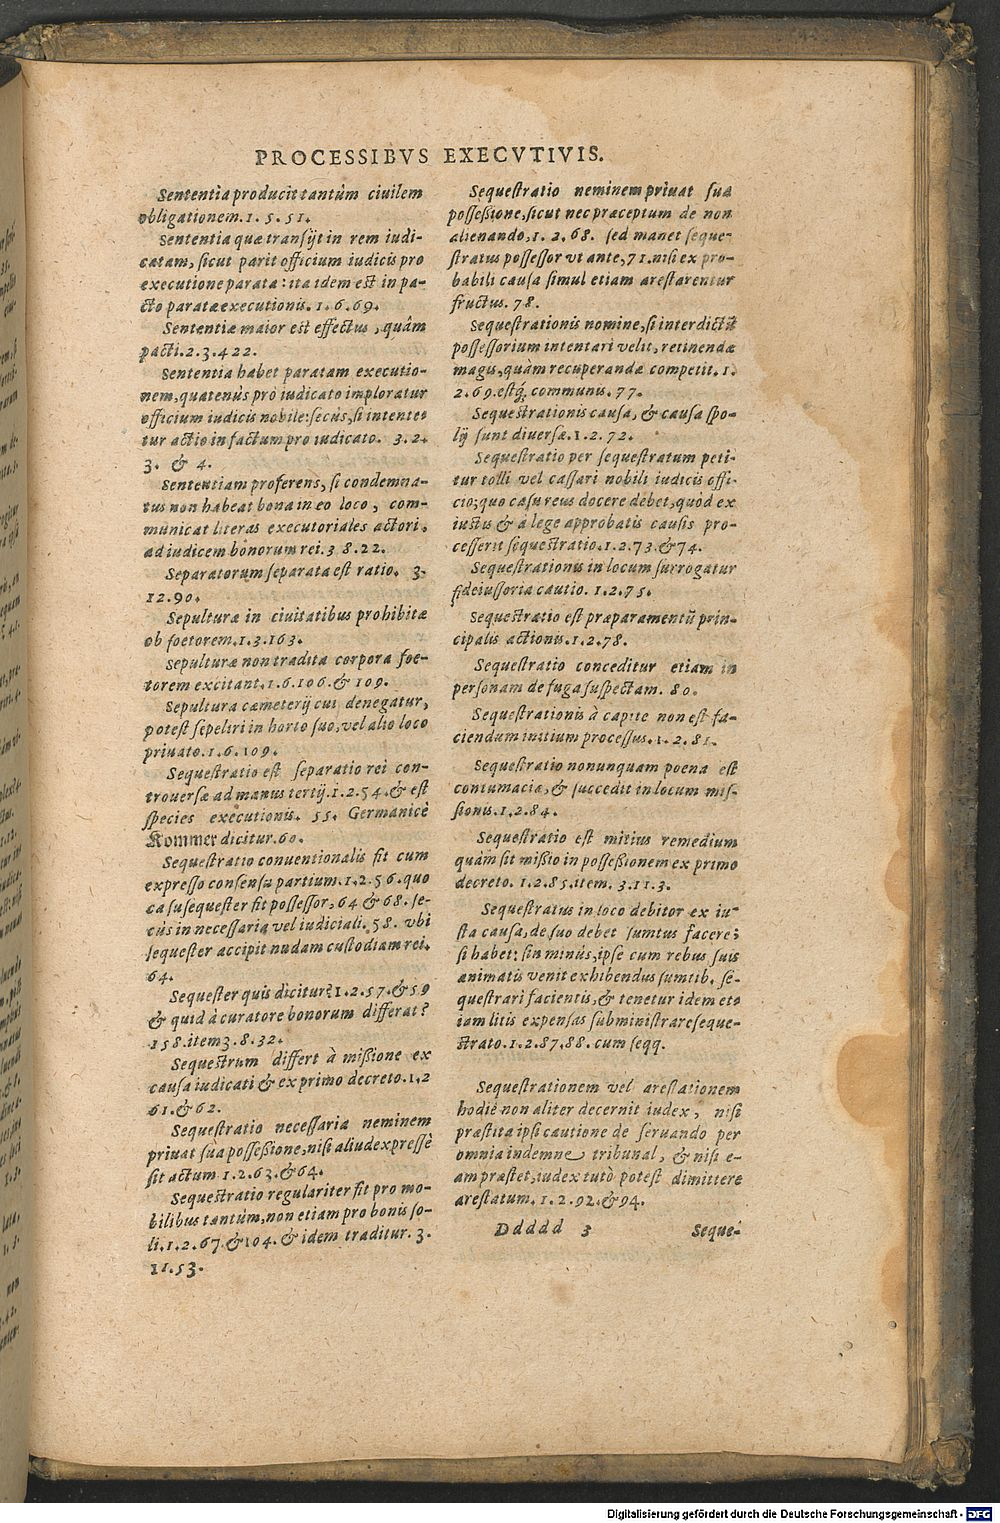 PROCESSIBVS EXECVTIVIS.
Sententia producit tantùm ciuilem
obligationem. 1. 5. 51.
Sententia quæ transijt in rem iudi-
catam, sicut parit officium iudicis pro
executione parata: ita idem est in pa-
cto paratæ executionis. 1. 6. 69.
Sententiæ maior est effectus, quàm
pacti. 2. 3. 422.
Sententia habet paratam executio-
nem, quatenùs pro iudicato imploratur
officium iudicis nobile: secùs, si intente-
tur actio in factum pro iudicato. 3. 2.
3. & 4.
Sententiam proferens, si condemna-
tus non habeat bona in eo loco, com-
municat literas executoriales actori,
ad iudicem bonorum rei. 3 8. 22.
Separatorum separata est ratio. 3.
12. 90.
Sepulturæ in ciuitatibus prohibitæ
ob foetorem. 1. 3. 163.
Sepulturæ non tradita corpora foe-
torem excitant. 1. 6. 106. & 109.
Sepultura cæmeterij cui denegatur,
potest sepeliri in horto suo, vel alio loco
priuato. 1. 6. 109.
Sequestratio est separatio rei con-
trouersæ ad manus tertij. 1. 2. 54. & est
species executionis. 55. Germanicè
Kommer dicitur. 60.
Sequestratio conuentionalis fit cum
expresso consensu partium. 1. 2. 56. quo
casu sequester fit possessor, 64 & 68. se-
cùs in necessaria vel iudiciali. 58. vbi
sequester accipit nudam custodiam rei.
64.
Sequester quis dicitur? 1. 2. 57. & 59
& quid à curatore bonorum differat?
158. item 3. 8. 32.
Sequestrum differt à mißione ex
causa iudicati & ex primo decreto. 1. 2
61. & 62.
Sequestratio necessaria neminem
priuat sua posseßione, nisi aliud expressè
sit actum 1. 2. 63. & 64.
Sequestratio regulariter fit pro mo-
bilibus tantùm, non etiam pro bonis so-
li. 1. 2. 67. & 104. & idem traditur. 3.
11. 53.
Sequestratio neminem priuat sua
posseßione, sicut nec præceptum de non
alienando, 1. 2. 68. sed manet seque-
stratus possessor vt ante, 71. nisi ex pro-
babili causa simul etiam arestarentur
fructus. 78.
Sequestrationis nomine, si interdictũ
possessorium intentari velit, retinendæ
magis, quàm recuperandæ competit. 1.
2. 69. estq; communis. 77.
Sequestrationis causa, & causa spo-
lij sunt diuersæ. 1. 2. 72.
Sequestratio per sequestratum peti-
tur tolli vel cassari nobili iudicis offi-
cio; quo casu reus docere debet, quòd ex
iustis & à lege approbatis causis pro-
cesserit sequestratio. 1. 2. 73. & 74.
Sequestrationis in locum surrogatur
fideiussoria cautio. 1. 2. 75.
Sequestratio est præparamentũ prin-
cipalis actionis. 1. 2. 78.
Sequestratio conceditur etiam in
personam de fuga suspectam. 80.
Sequestrationis à capite non est fa-
ciendum initium processus. 1. 2. 81.
Sequestratio nonunquam poena est
contumacia, & succedit in locum mis-
sionis. 1. 2. 84.
Sequestratio est mitius remedium
quàm sit mißio in posseßionem ex primo
decreto. 1. 2. 85. item. 3. 11. 3.
Sequestratus in loco debitor ex iu-
sta causa, de suo debet sumtus facere;
si habet: sin minùs, ipse cum rebus suis
animatis venit exhibendus sumtib. se-
questrari facientis, & tenetur idem et-
iam litis expensas subministrare seque-
strato. 1. 2. 87, 88. cum seqq.
Sequestrationem vel arestationem
hodiè non aliter decernit iudex, nisi
præstita ipsi cautione de seruando per
omnia indemne tribunal, & nisi e-
am præstet, iudex tutò potest dimittere
arestatum. 1. 2. 92. & 94.
Ddddd 3 Seque-
Digitalisierung gefördert durch die Deutsche Forschungsgemeinschaft - DFG